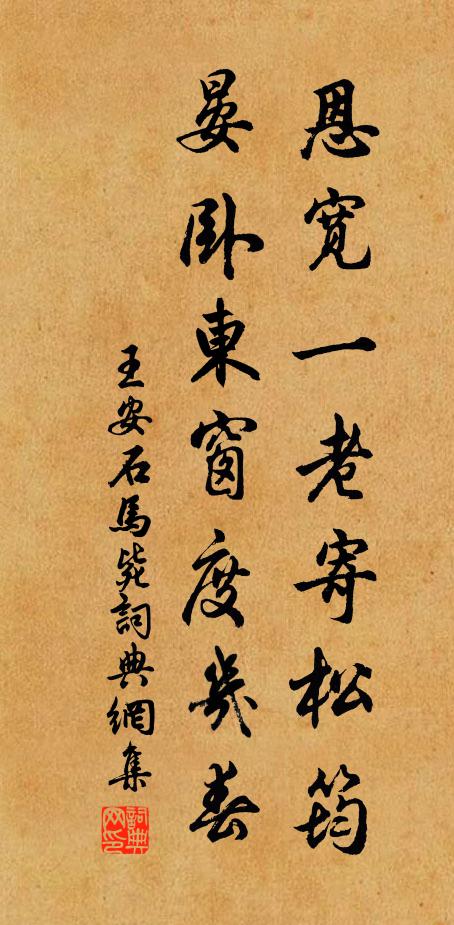 恩寬一老寄松筠
晏卧東窗度幾春
王安石馬毙詞典網集
詞典网印